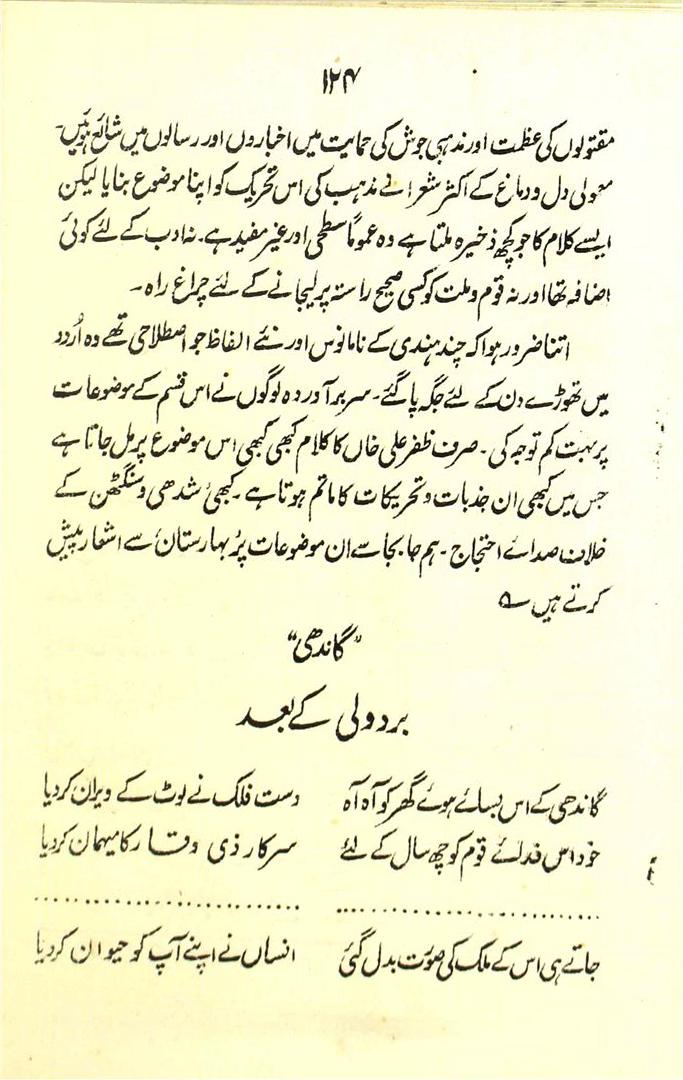 ۱۲۴
مقتولوں کی عظمت اور مذہبی جوش کی حمایت میں اخباروں اور رسالوں میں شائع ہوئیں۔
معمولی دل و دماغ کے اکثر شعرا نے مذہب کی اس تحریک کو اپنا موضوع بنایا لیکن
ایسے کلام کا جو کچھ ذخیرہ ملتا ہے وہ عموماً سطحی اور غیر مفید ہے۔ نہ ادب کے لئے کوئی
اضافہ تھا اور نہ قوم و ملت کو کسی صحیح راستہ پر لیجانے کے لئے چراغ راہ۔
اتنا ضرور ہوا کہ چند ہندی کے نامانوس اور نئے الفاظ جو اصطلاحی تھے وہ اُردو
میں تھوڑے دن کے لئے جگہ پا گئے۔ سربرآوردہ لوگوں نے اس قسم کے موضوعات
پر بہت کم توجہ کی۔ صرف ظفر علی خاں کا کلام کبھی کبھی اس موضوع پر مل جاتا ہے
جس میں کبھی ان جذبات و تحریکات کا ماتم ہوتا ہے۔ کبھی شدھی و سنگٹھن کے
خلاف صدائے احتجاج۔ ہم جابجا سے ان موضوعات پر بہارستان سے اشعار پیش
کرتے ہیں ؎
"گاندھی"
بردولی کے بعد
گاندھی کے اس بسائے ہوئے گھر کو آہ آہ دست فلک نے لوٹ کے ویران کر دیا
خود اس فدائے قوم کو چھ سال کے لئے سرکار ذی وقار کا میہمان کر دیا
........................ ........................
جاتے ہی اس کے ملک کی صورت بدل گئی انساں نے اپنے آپ کو حیوان کر دیا